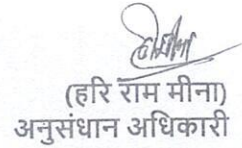 (हरि राम मीना)
अनुसंधान अधिकारी